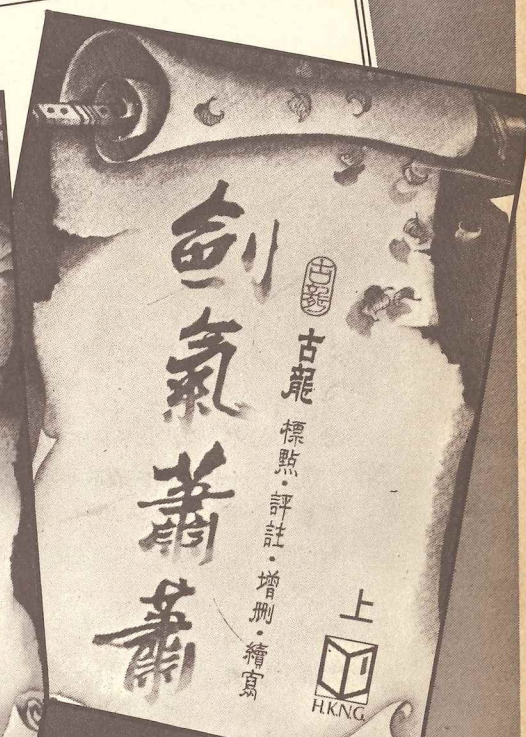 劍氣蕭蕭
古龍
古龍 標點・評註・增删・續寫
上
H.K.N.G.